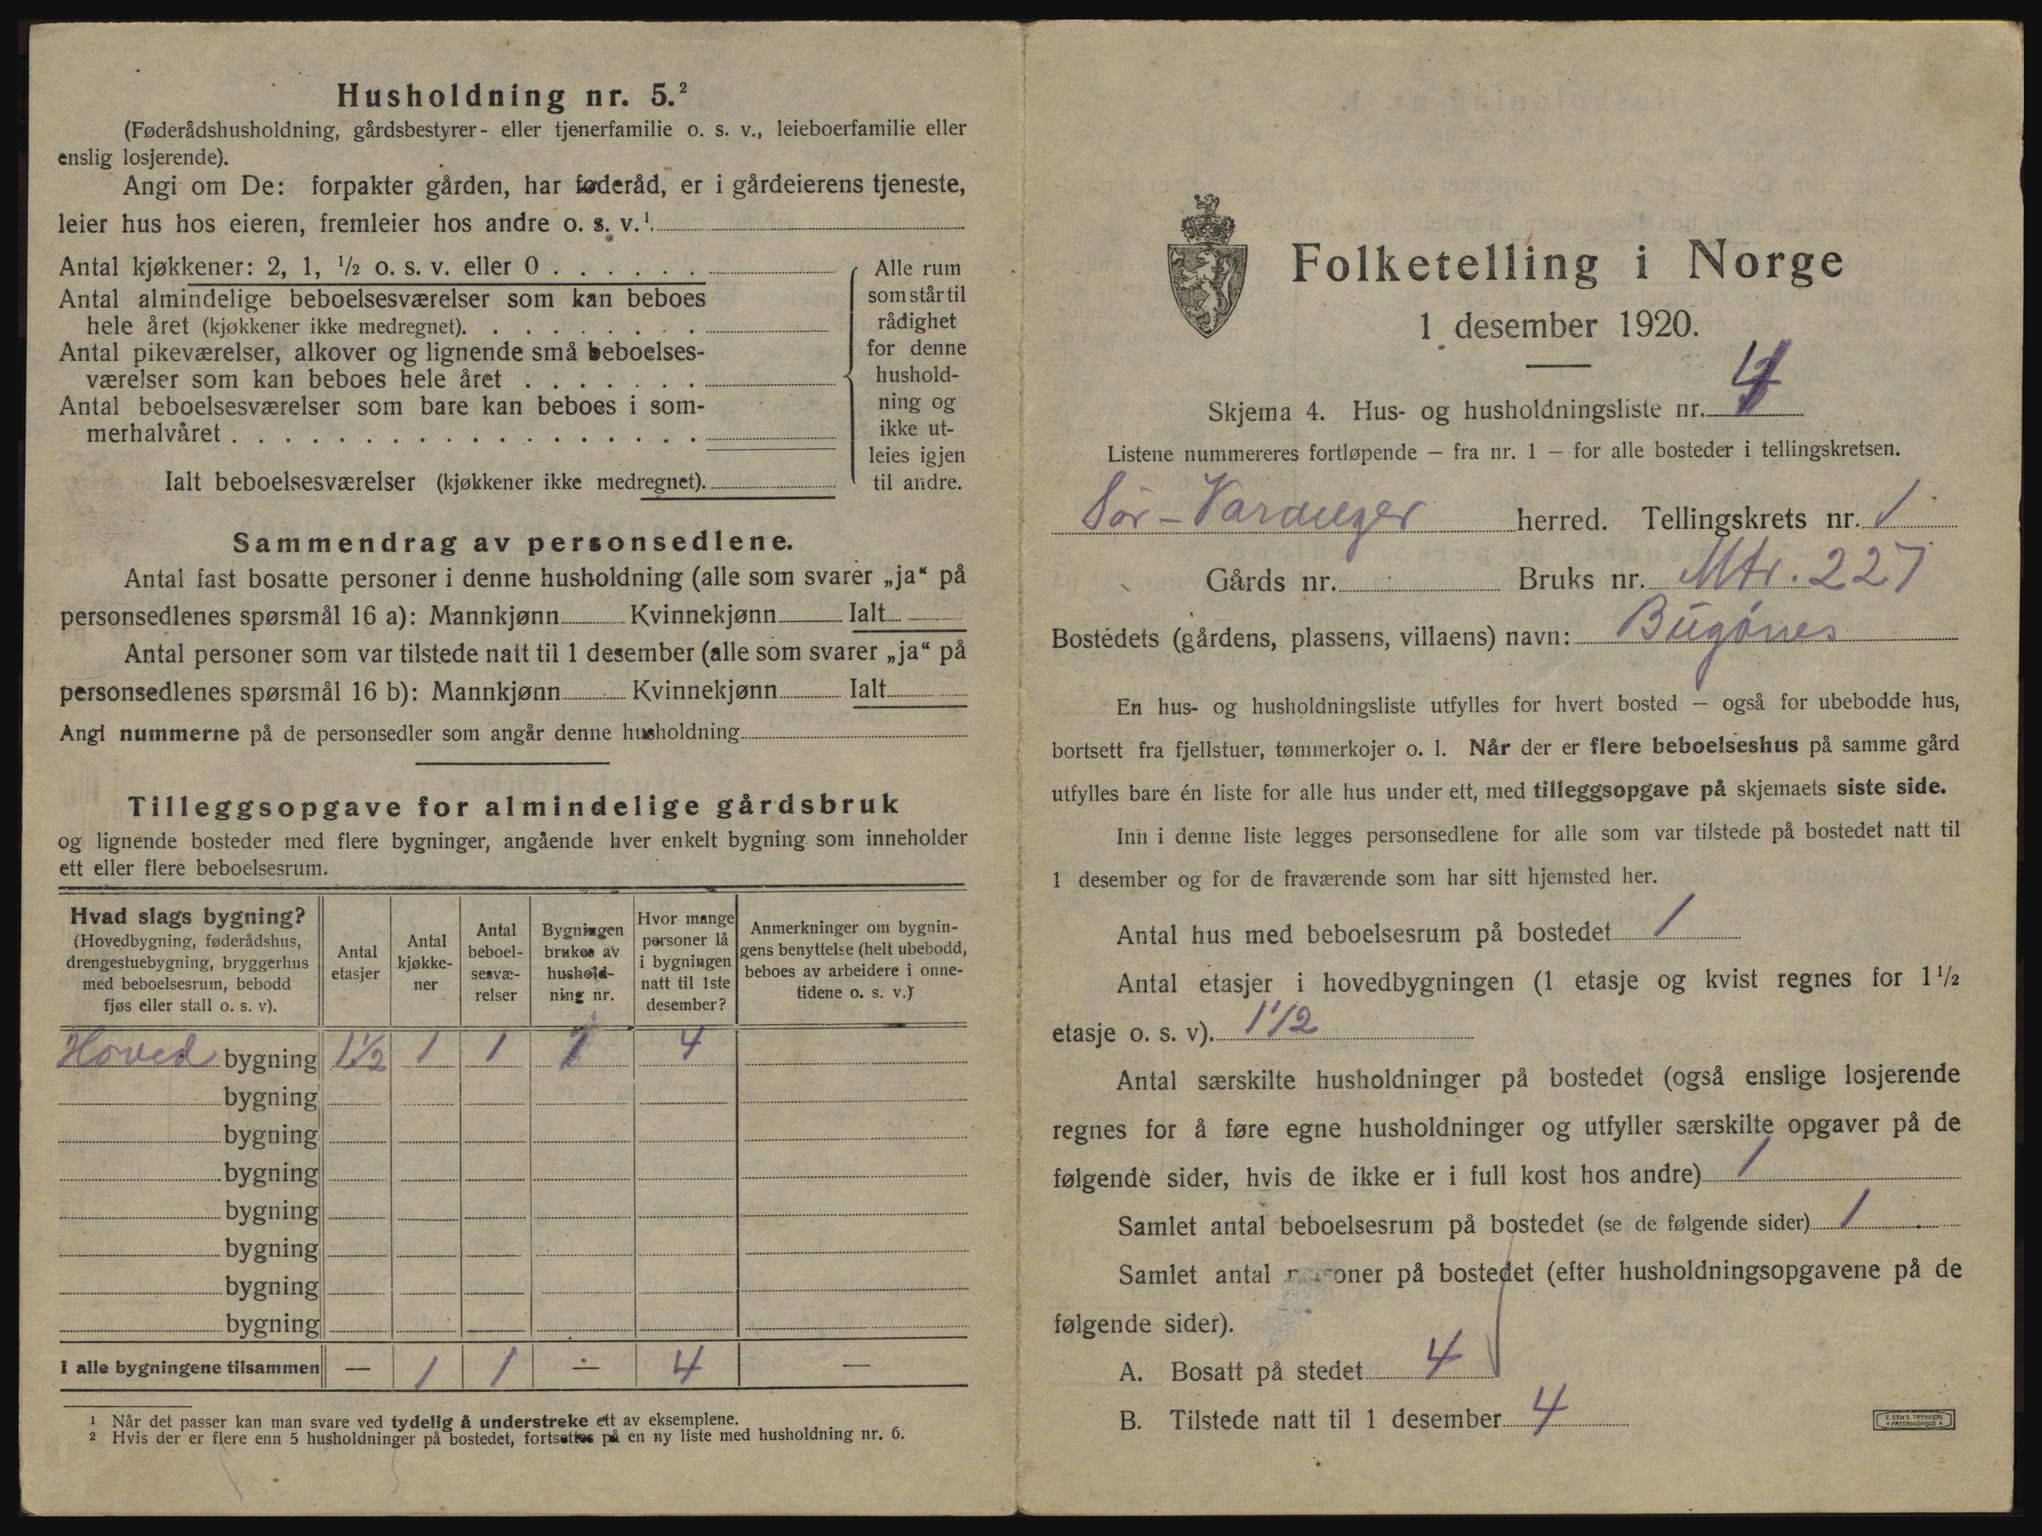 Husholdning nr. 5.²
(Føderådshusholdning, gårdsbestyrer- eller tjenerfamilie o. s. v., leieboerfamilie eller
enslig losjerende).
Angi om De: forpakter gården, har føderåd, er i gårdeierens tjeneste,
leier hus hos eieren, fremleier hos andre o. s. v.¹
Antal kjøkkener: 2, 1, ½ o. s. v. eller 0
Antal almindelige beboelsesværelser som kan beboes
hele året (kjøkkener ikke medregnet).
Antal pikeværelser, alkover og lignende små beboelses-
værelser som kan beboes hele året
Antal beboelsesværelser som bare kan beboes i som-
merhalvåret
Ialt beboelsesværelser (kjøkkener ikke medregnet).
Alle rum
som står til
rådighet
for denne
hushold-
ning og
ikke ut-
leies igjen
til andre.
Sammendrag av personsedlene.
Antal fast bosatte personer i denne husholdning (alle som svarer „ja“ på
personsedlenes spørsmål 16 a): Mannkjønn Kvinnekjønn Ialt
Antal personer som var tilstede natt til 1 desember (alle som svarer „ja“ på
personsedlenes spørsmål 16 b): Mannkjønn Kvinnekjønn Ialt
Angi nummerne på de personsedler som angår denne husholdning
Tilleggsopgave for almindelige gårdsbruk
og lignende bosteder med flere bygninger, angående hver enkelt bygning som inneholder
ett eller flere beboelsesrum.
Hvad slags bygning?
(Hovedbygning, føderådshus,
drengestuebygning, bryggerhus
med beboelsesrum, bebodd
fjøs eller stall o. s. v).
Antal
etasjer
Antal
kjøkke-
ner
Antal
beboel-
sesvæ-
relser
Bygningen
brukes av
hushold-
ning nr.
Hvor mange
personer lå
i bygningen
natt til 1ste
desember?
Anmerkninger om bygnin-
gens benyttelse (helt ubebodd,
beboes av arbeidere i onne-
tidene o. s. v.)
Hoved bygning 1½ 1 1 1 4
bygning
bygning
bygning
bygning
bygning
bygning
bygning
I alle bygningene tilsammen — 1 1 ÷ 4 —
¹ Når det passer kan man svare ved tydelig å understreke ett av eksemplene.
² Hvis der er flere enn 5 husholdninger på bostedet, fortsettes på en ny liste med husholdning nr. 6.
Folketelling i Norge
1 desember 1920.
Skjema 4. Hus- og husholdningsliste nr. 4
Listene nummereres fortløpende – fra nr. 1 – for alle bosteder i tellingskretsen.
Sør-Varanger herred. Tellingskrets nr. 1
Gårds nr. Bruks nr. Mtr. 227
Bostedets (gårdens, plassens, villaens) navn: Bugønes
En hus- og husholdningsliste utfylles for hvert bosted – også for ubebodde hus,
bortsett fra fjellstuer, tømmerkojer o. l. Når der er flere beboelseshus på samme gård
utfylles bare én liste for alle hus under ett, med tilleggsopgave på skjemaets siste side.
Inn i denne liste legges personsedlene for alle som var tilstede på bostedet natt til
1 desember og for de fraværende som har sitt hjemsted her.
Antal hus med beboelsesrum på bostedet 1
Antal etasjer i hovedbygningen (1 etasje og kvist regnes for 1½
etasje o. s. v). 1½
Antal særskilte husholdninger på bostedet (også enslige losjerende
regnes for å føre egne husholdninger og utfyller særskilte opgaver på de
følgende sider, hvis de ikke er i full kost hos andre) 1
Samlet antal beboelsesrum på bostedet (se de følgende sider) 1
Samlet antal personer på bostedet (efter husholdningsopgavene på de
følgende sider).
A. Bosatt på stedet 4
B. Tilstede natt til 1 desember 4